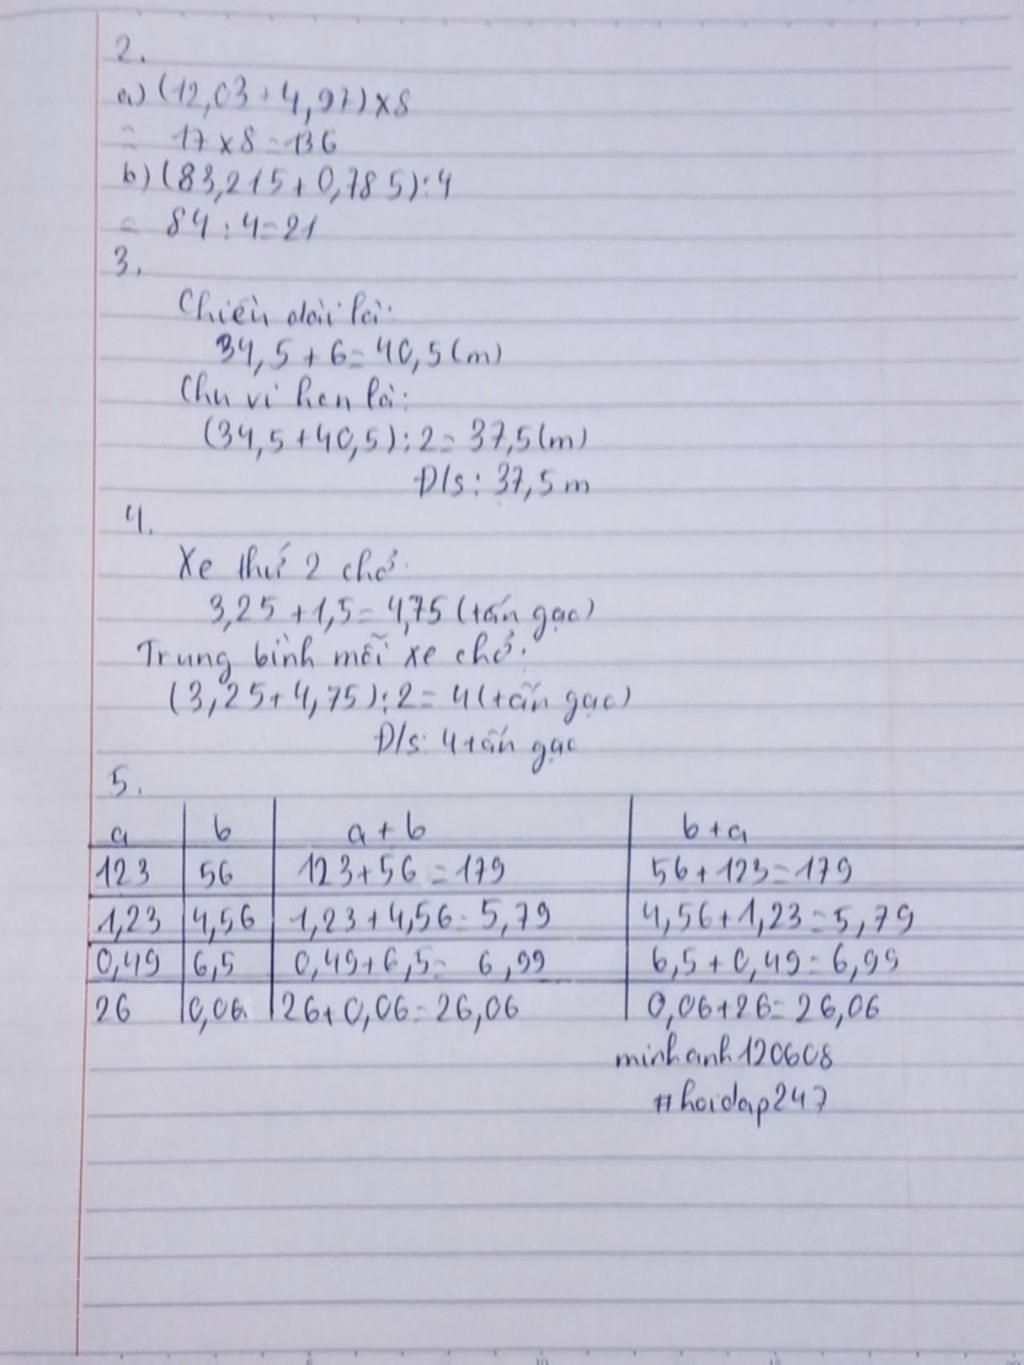 2.
a) (12,03+4,97)×8
= 17×8=136
b) (83,215+0,785):4
= 84:4=21
3.
Chiều dài là:
34,5+6=40,5(m)
Chu vi hcn là:
(34,5+40,5):2=37,5(m)
Đ/s: 37,5m
4.
Xe thứ 2 chở:
3,25+1,5=4,75(tấn gạo)
Trung bình mỗi xe chở:
(3,25+4,75):2=4(tấn gạo)
Đ/s: 4 tấn gạo
5.
a b a+b b+a
123 56 123+56=179 56+123=179
1,23 4,56 1,23+4,56=5,79 4,56+1,23=5,79
0,49 6,5 0,49+6,5=6,99 6,5+0,49=6,99
26 0,06 26+0,06=26,06 0,06+26=26,06
minhanh120608
#hoidap247